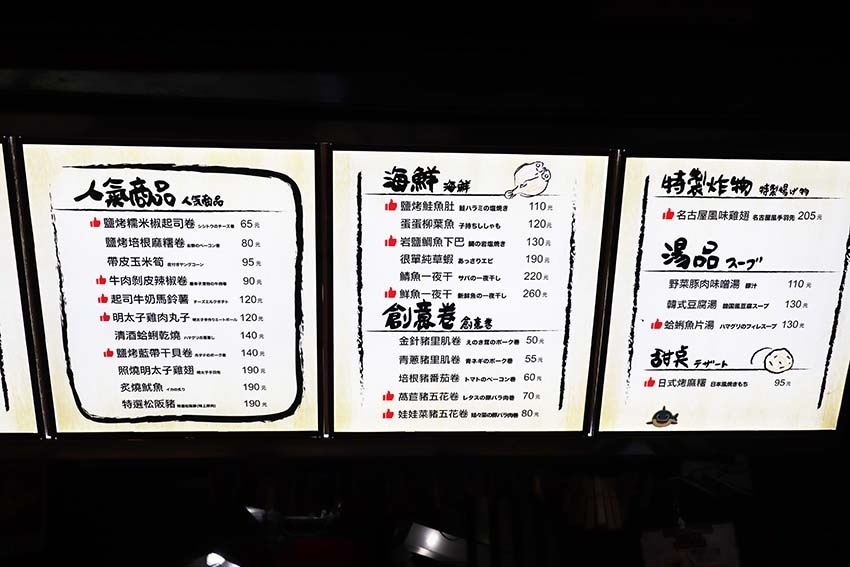 人氣商品 人気商品
鹽烤糯米椒起司卷 シシトウのチーズ巻 65元
鹽烤培根麻糬卷 80元
帶皮玉米筍 皮付きヤングコーン 95元
牛肉剝皮辣椒卷 90元
起司牛奶馬鈴薯 チーズミルクポテト 120元
明太子雞肉丸子 明太子手作りミートボール 120元
清酒蛤蜊乾燒 ハマグリの酒蒸し 140元
鹽烤藍帶干貝卷 140元
照燒明太子雞翅 明太子手羽 190元
炙燒魷魚 イカの炙り 190元
特選松阪豬 190元
海鮮 海鮮
鹽烤鮭魚肚 鮭ハラミの塩焼き 110元
蛋蛋柳葉魚 子持ちししゃも 120元
岩鹽鯛魚下巴 鯛の岩塩焼き 130元
很單純草蝦 あっさりエビ 190元
鯖魚一夜干 サバの一夜干し 220元
鮮魚一夜干 新鮮魚の一夜干し 260元
創意卷 創意巻
金針豬里肌卷 えのき茸のポーク巻 50元
青蔥豬里肌卷 青ネギのポーク巻 55元
培根豬番茄卷 トマトのベーコン巻 60元
萵苣豬五花卷 レタスの豚バラ肉巻 70元
娃娃菜豬五花卷 娃々菜の豚バラ肉巻 80元
特製炸物 特製揚げ物
名古屋風味雞翅 名古屋風手羽先 205元
湯品 スープ
野菜豚肉味噌湯 豚汁 110元
韓式豆腐湯 韓国風豆腐スープ 130元
蛤蜊魚片湯 ハマグリのフィレスープ 130元
甜点 デザート
日式烤麻糬 日本風焼きもち 95元